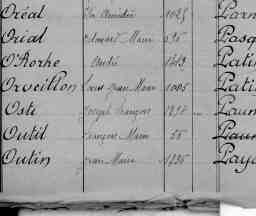 Oréal Marie Amédée 1025 Parm
Orial Edmond Marie 595 Pasq
O'Rorke André 1763 Patin
Orveillon Louis Jean Marie 1005 Patin
Oste Joseph François 1297 Paum
Outil François Marie 55 Paum
Outin Jean Marie 1735 Pays